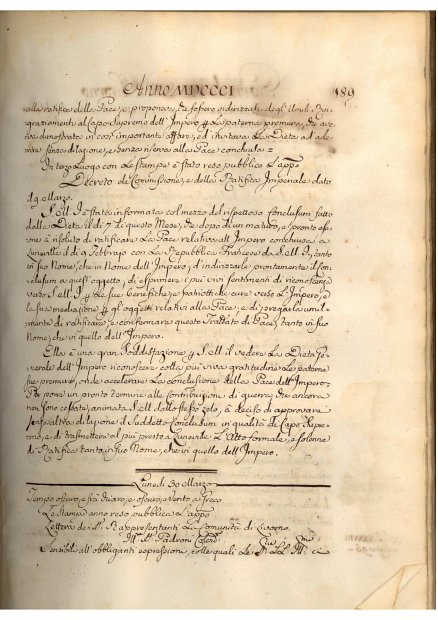 Anno MDCCCI 189
alla ratifica della Pace, e proponeva, che fossero indirizzati degl'Umili Rin-
graziamenti al Capo Supremo dell'Impero p. le paterne premure, che ave-
va dimostrate in così importante affare, ed invitava la Dieta ad ade-
rire senza dilazione, e senza riserva alla Pace conclusa =
In terzo Luogo con le stampe è stato reso pubblico l'app.o
Decreto di Commissione, e della Ratifica Imperiale dato
d. 9. Marzo.
S. M. I. è stata informata col mezzo del rispettoso Conclusum fatto
dalla Dieta il dì 7 di questo Mese, che dopo di un maturo, e pronto esa-
me à risoluto di ratificare la Pace relativa all'Impero conchiusa a
Luneville il dì 9 Febbrajo con la Repubblica Francese da S. M. I., tanto
in suo Nome, che in Nome dell'Impero, d'indirizzarle prontamente il Con-
clusum a quest'oggetto, di esprimere i più vivi sentimenti di riconoscenza
verso S. M. I. p. le sue benefiche, e patriottiche cure verso l'Impero, e
la sua mediazione p. gl'oggetti relativi alla Pace, e di pregarla umil-
mente di ratificare, e confermare questo Trattato di Pace, tanto in suo
Nome, che in quello dell'Impero.
Ella è una gran Soddisfazione p. S. M. il vedere la Dieta Ge-
nerale dell'Impero riconoscere colla più viva gratitudine le paterne
sue premure, onde accelerare la conclusione della Pace dell'Impero;
Per porre un pronto termine alle contribuzioni di guerra, che ancora
non sono cessate, animata S. M. dallo stesso zelo, à deciso di approvare
senz'altra dilazione il suddetto Conclusum in qualità di Capo Supre-
mo, e di trasmettere al più presto a Luneville l'Atto formale, e solenne
di Ratifica tanto in suo Nome, che in quello dell'Impero.
Lunedì 30 Marzo
Tempo oscuro, e poi chiaro, e oscuro, e vento a
Le stampe anno reso pubblica l'app.a
Lettera de' Rappresentanti la Comunità di Livorno.
Ill.i SS.i Padroni
Sensibili all'obbliganti espressioni, colle quali le ci